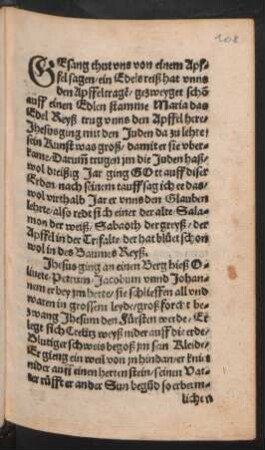 208
GEsang thut vns von einem Apf-
fel sagen/ein Edels reiß hat vnns
den Apffel tragē/gezweyget schō
auff einen Edlen stamme Maria das
Edel Reyß trug vnns den Apffel here/
Jhesus ging mit den Juden da zu lehre/
sein Kunst was groß/damit er sie vber-
kame/Darumb trugen jm die Juden haß/
wol dreißig Jar ging GOtt auff diser
Erden/nach seinem tauff sag ich er das/
wol vierthalb Jar er vnns den Glauben
lehrte/also redt sich einer der alte Sala-
mon der weiß/Sabaoth der greyß/der
Apffel in der Trifalte/der hat blüet schon
wol in des Baumes Reyß.
Jhesus ging an einen Berg hieß O-
liuete/Petrum/Jacobum vnnd Johan-
nem er bey jm hette/sie schlieffen all vnd
waren in grossem leyde/groß forcht be-
zwang Jhesum den Fürsten werde/Er
legt sich Creütz weyß nider auff die erde/
Blutiger schweis begoß jm sein Kleide/
Er gieng ein weil von jn hindan/er kniet
nider auff einen herten stein/seinen Vat-
ter rüfft er ander Sun begūd so erbermi-
lichen